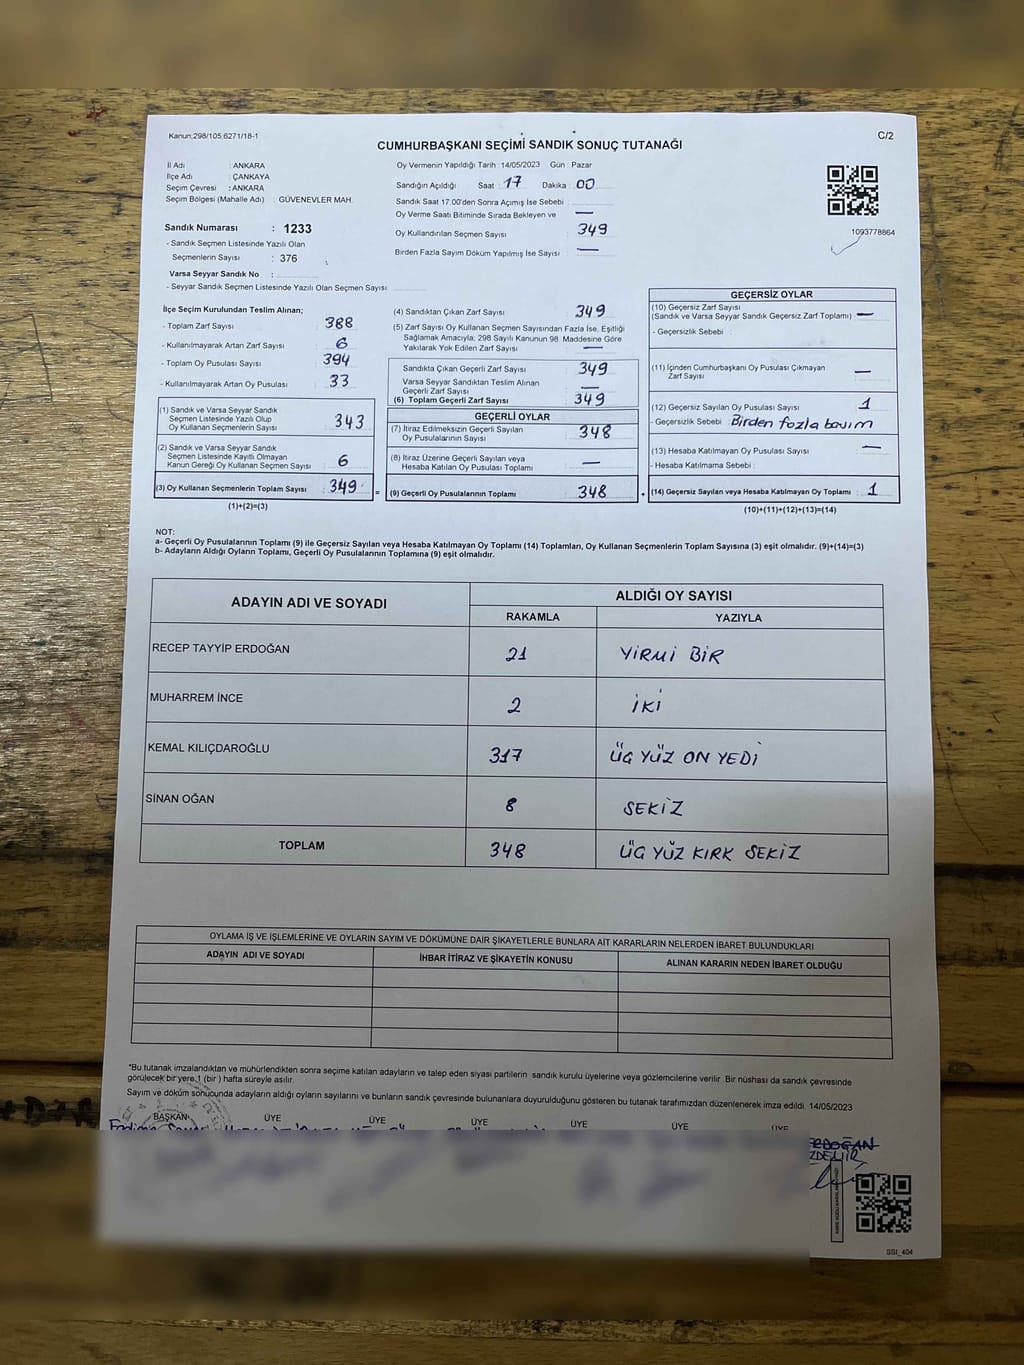 Kanun:298/105;6271/18-1
C/2
CUMHURBAŞKANI SEÇİMİ SANDIK SONUÇ TUTANAĞI
İl Adı : ANKARA
İlçe Adı : ÇANKAYA
Seçim Çevresi : ANKARA
Seçim Bölgesi (Mahalle Adı) : GÜVENEVLER MAH.
Oy Vermenin Yapıldığı Tarih : 14/05/2023 Gün : Pazar
Sandığın Açıldığı Saat : 17 Dakika : 00
Sandık Saat 17.00'den Sonra Açımış İse Sebebi :
Oy Verme Saati Bitiminde Sırada Bekleyen ve —
Oy Kullandırılan Seçmen Sayısı : 349
Birden Fazla Sayım Döküm Yapılmış İse Sayısı : —
1093778864
Sandık Numarası : 1233
- Sandık Seçmen Listesinde Yazılı Olan
Seçmenlerin Sayısı : 376
Varsa Seyyar Sandık No :
- Seyyar Sandık Seçmen Listesinde Yazılı Olan Seçmen Sayısı:
İlçe Seçim Kurulundan Teslim Alınan;
- Toplam Zarf Sayısı : 388
- Kullanılmayarak Artan Zarf Sayısı : 6
- Toplam Oy Pusulası Sayısı : 394
- Kullanılmayarak Artan Oy Pusulası : 33
(1) Sandık ve Varsa Seyyar Sandık
Seçmen Listesinde Yazılı Olup
Oy Kullanan Seçmenlerin Sayısı : 343
(2) Sandık ve Varsa Seyyar Sandık
Seçmen Listesinde Kayıtlı Olmayan
Kanun Gereği Oy Kullanan Seçmen Sayısı : 6
(3) Oy Kullanan Seçmenlerin Toplam Sayısı : 349
(1)+(2)=(3)
(4) Sandıktan Çıkan Zarf Sayısı : 349
(5) Zarf Sayısı Oy Kullanan Seçmen Sayısından Fazla İse, Eşitliği
Sağlamak Amacıyla; 298 Sayılı Kanunun 98. Maddesine Göre
Yakılarak Yok Edilen Zarf Sayısı : —
Sandıkta Çıkan Geçerli Zarf Sayısı : 349
Varsa Seyyar Sandıktan Teslim Alınan
Geçerli Zarf Sayısı : —
(6) Toplam Geçerli Zarf Sayısı : 349
GEÇERLİ OYLAR
(7) İtiraz Edilmeksizin Geçerli Sayılan
Oy Pusulalarının Sayısı : 348
(8) İtiraz Üzerine Geçerli Sayılan veya
Hesaba Katılan Oy Pusulası Toplamı : —
= (9) Geçerli Oy Pusulalarının Toplamı : 348 +
GEÇERSİZ OYLAR
(10) Geçersiz Zarf Sayısı
(Sandık ve Varsa Seyyar Sandık Geçersiz Zarf Toplamı) : —
- Geçersizlik Sebebi :
(11) İçinden Cumhurbaşkanı Oy Pusulası Çıkmayan
Zarf Sayısı : —
(12) Geçersiz Sayılan Oy Pusulası Sayısı : 1
- Geçersizlik Sebebi : Birden fazla basım
(13) Hesaba Katılmayan Oy Pusulası Sayısı : —
- Hesaba Katılmama Sebebi :
(14) Geçersiz Sayılan veya Hesaba Katılmayan Oy Toplamı : 1
(10)+(11)+(12)+(13)=(14)
NOT:
a- Geçerli Oy Pusulalarının Toplamı (9) ile Geçersiz Sayılan veya Hesaba Katılmayan Oy Toplamı (14) Toplamları, Oy Kullanan Seçmenlerin Toplam Sayısına (3) eşit olmalıdır. (9)+(14)=(3)
b- Adayların Aldığı Oyların Toplamı, Geçerli Oy Pusulalarının Toplamına (9) eşit olmalıdır.
ADAYIN ADI VE SOYADI
ALDIĞI OY SAYISI
RAKAMLA YAZIYLA
RECEP TAYYİP ERDOĞAN 21 YİRMİ BİR
MUHARREM İNCE 2 İKİ
KEMAL KILIÇDAROĞLU 317 ÜÇ YÜZ ON YEDİ
SİNAN OĞAN 8 SEKİZ
TOPLAM 348 ÜÇ YÜZ KIRK SEKİZ
OYLAMA İŞ VE İŞLEMLERİNE VE OYLARIN SAYIM VE DÖKÜMÜNE DAİR ŞİKAYETLERLE BUNLARA AİT KARARLARIN NELERDEN İBARET BULUNDUKLARI
ADAYIN ADI VE SOYADI İHBAR İTİRAZ VE ŞİKAYETİN KONUSU ALINAN KARARIN NEDEN İBARET OLDUĞU
*Bu tutanak imzalandıktan ve mühürlendikten sonra seçime katılan adayların ve talep eden siyasi partilerin sandık kurulu üyelerine veya gözlemcilerine verilir. Bir nüshası da sandık çevresinde
görülecek bir yere 1 (bir ) hafta süreyle asılır.
Sayım ve döküm sonucunda adayların aldığı oyların sayılarını ve bunların sandık çevresinde bulunanlara duyurulduğunu gösteren bu tutanak tarafımızdan düzenlenerek imza edildi. 14/05/2023
BAŞKAN ÜYE ÜYE ÜYE ÜYE ÜYE ÜYE
SSI_404